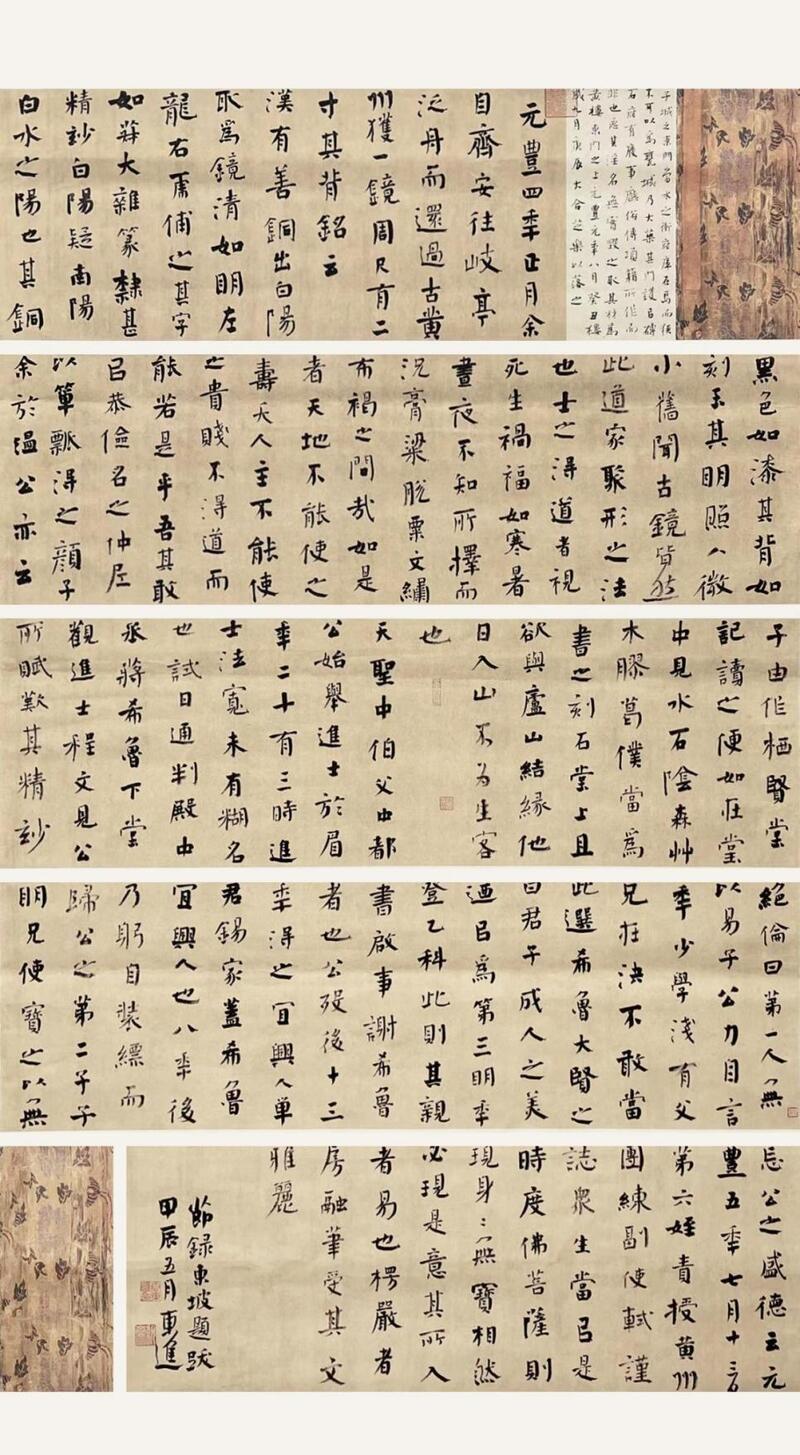 子城之東門當水之衝府庫在焉而
不可以為甕城乃大築其門護以磚
石府有廢事廳俗傳項籍所作而
非也惡其淫名無實毀之取其材為
黃樓東門之上元豐元年八月癸丑樓
成九月庚辰大合之樂以落之
元豐四年正月余
自齊安往岐亭
泛舟而還過古黃
州獲一鏡周尺有二
寸其背銘云
漢有善銅出白陽
取為鏡清如明左
龍右虎俌之其字
如菽大雜篆隸甚
精妙白陽疑南陽
白水之陽也其銅
黑色如漆其背如
刻玉其明照人微
小舊聞古鏡皆然
此道家聚形之法
也士之得道者視
死生禍福如寒暑
晝夜不知所擇而
況膏粱脫粟文繡
布褐之間哉如是
者天地不能使之
壽夭人主不能使
之貴賤不得道而
能若是乎吾其敢
以恭儉名之仲尼
以簞瓢得之顏子
余於溫公亦云
子由作栖賢堂
記讀之便如在堂
中見水石陰森艸
木膠葛僕當為
書之刻石堂上且
欲與廬山結緣他
日入山不為生客
也
天聖中伯父中都
公始舉進士於眉
年二十有三時進
士法寬未有糊名
也試日通判殿中
丞蔣希魯下堂
觀進士程文見公
所賦歎其精妙
絕倫曰第一人無
以易子公力自言
年少學淺有父
兄在決不敢當
此選希魯大賢之
曰君子成人之美
迺以為第三明年
登乙科此則其親
書啟事謝希魯
者也公歿後十三
年得之宜興人單
君錫家蓋希魯
宜興人也八年後
乃躬自裝縹而
歸公之第二子子
明兄使寶之以無
忘公之盛德云元
豐五年七月十三日
第六姪責授黃州
團練副使軾謹
誌眾生當以是
時度佛菩薩則
現身::無寶相然
必現是意其所入
者易也楞嚴者
房融筆受其文
雅麗
節錄東坡題跋
甲辰五月東進